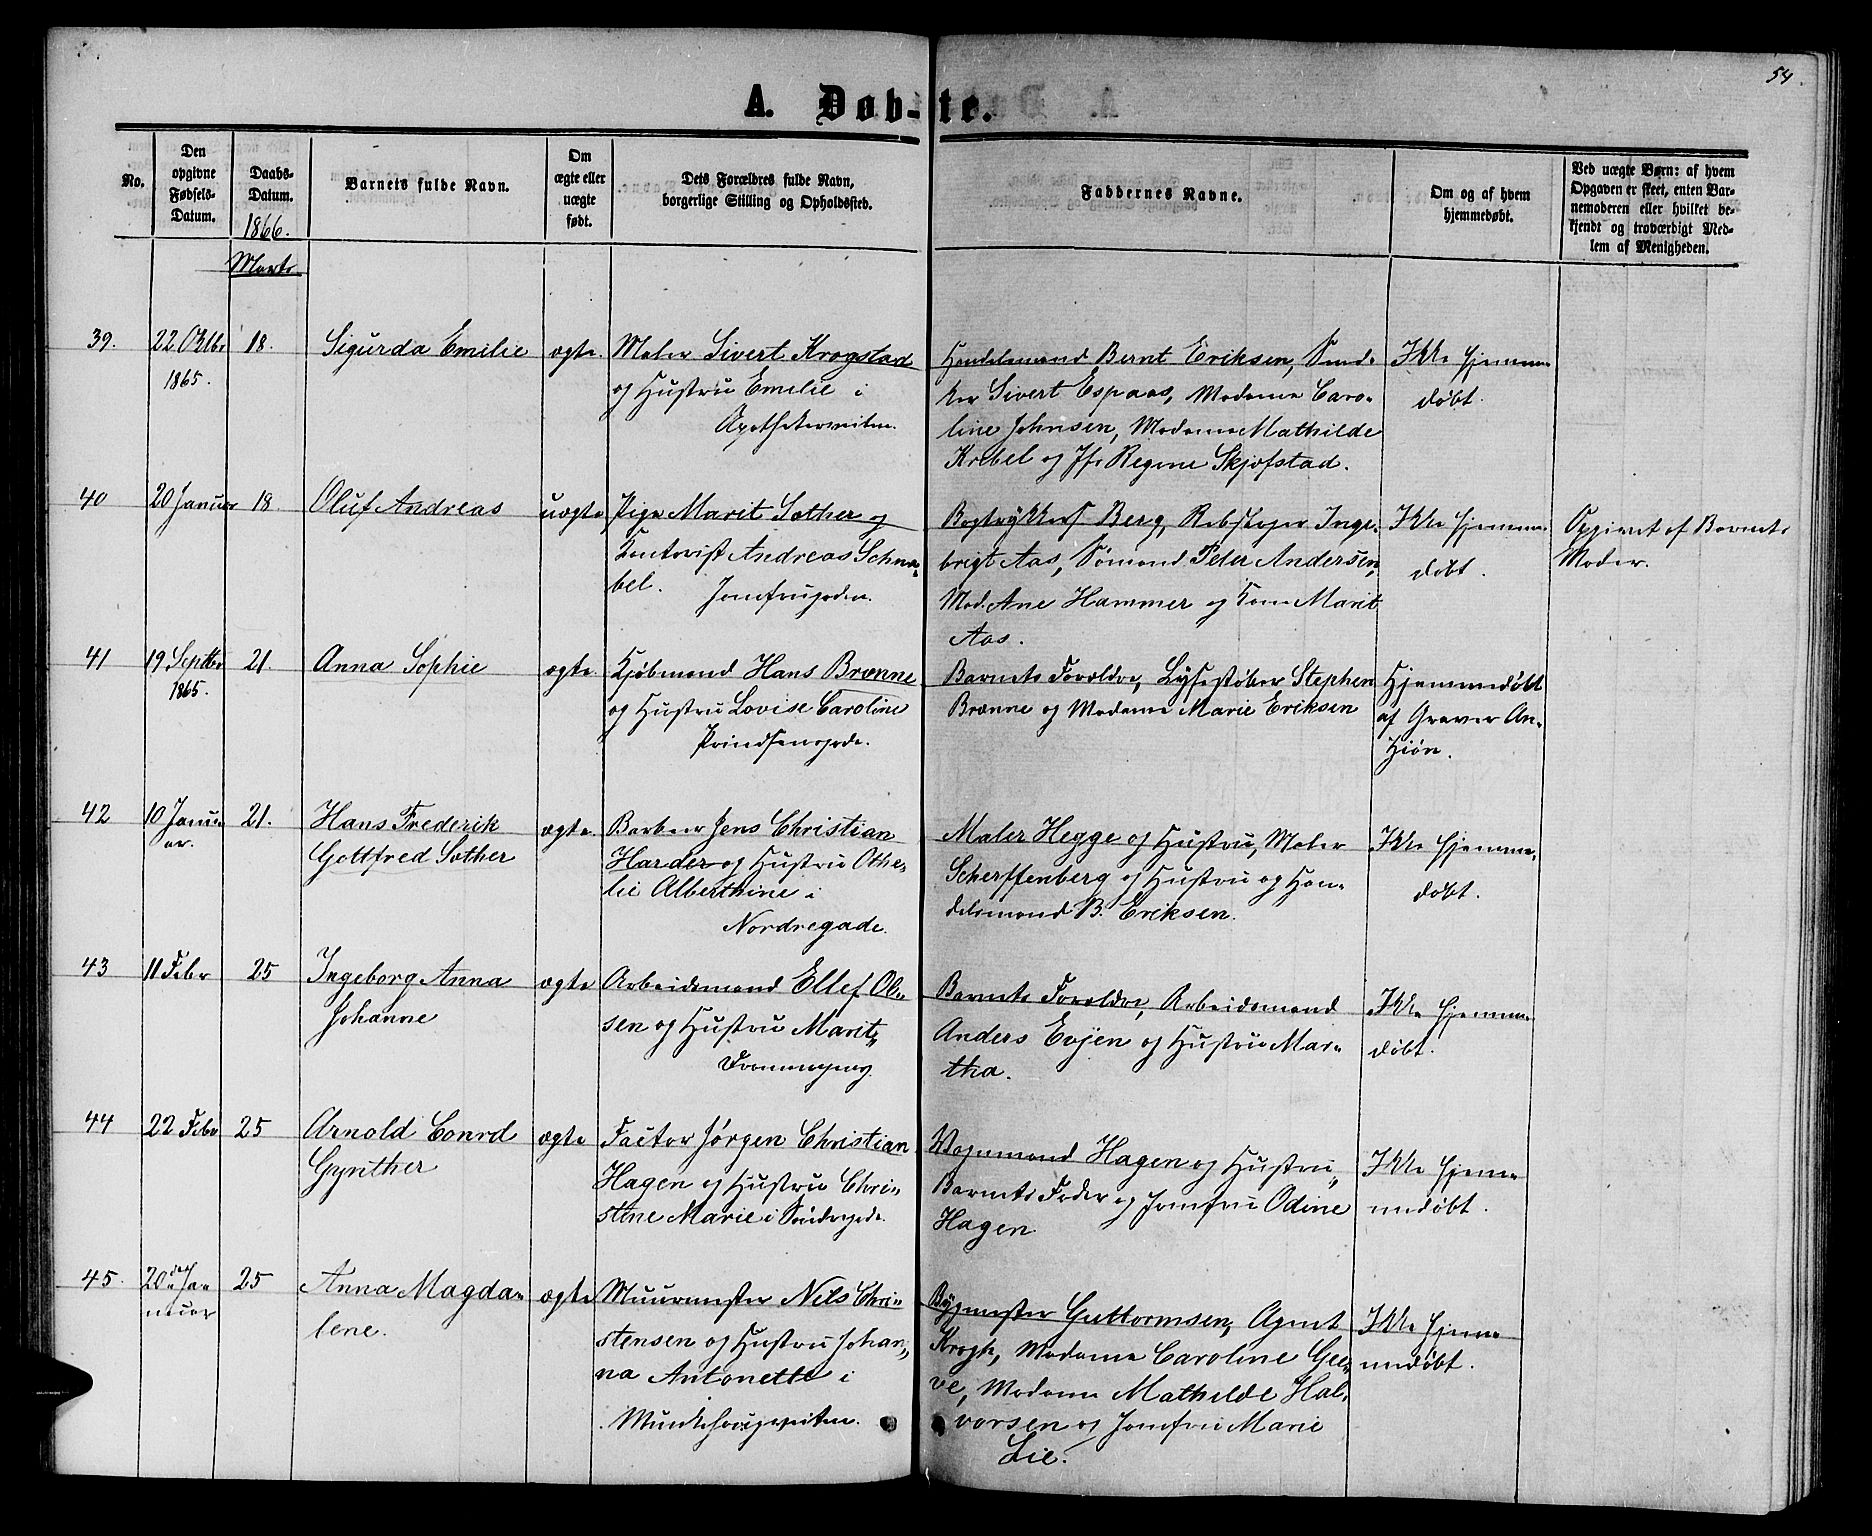 54.
A. Døb-te.
No.
Den
opgivne
Fødsels-
Datum.
Daabs-
Datum.
1866.
Barnets fulde Navn.
Om
ægte eller
uægte
født.
Dets Forældres fulde Navn,
borgerlige Stilling og Opholdssted.
Faddernes Navne.
Om og af hvem
hjemmedøbt.
Ved uægte Børn: af hvem
Opgaven er skeet, enten Bar-
nemoderen eller hvilket be-
kjendt og troværdigt Med-
lem af Menigheden.
Marts
39.
22 Oktbr
1865.
18.
Sigurda Emilie
ægte.
Maler Sivert Krogstad
og Hustru Emilie i
Apothekerveiten.
Handelsmand Bernt Eriksen, Sned-
ker Sivert Espaas, Madame Caro-
line Johnsen, Madame Mathilde
Krebel og Jfr Regine Skjefstad.
Ikke hjemme-
døbt.
40
20 Januar
18
Oluf Andreas
uægte
Pige Marit Sæther og
Kontorist Andreas Schna-
bel. Jomfrugaden.
Bogtrykker Berg, Rebslager Inge-
brigt Aas, Sømand Peter Andersen,
Mad. Ane Hammer og Kone Marit
Aas.
Ikke hjemme-
døbt.
Opgivet af Barnets
Moder.
41
19 Septbr
1865.
21.
Anna Sophie
ægte.
Kjøbmand Hans Brænne
og Hustru Lovise Caroline
Prindsensgade.
Barnets Forældre, Lysestøber Stephen
Brænne og Madame Marie Eriksen
Hjemmedøbt
af Graver An-
zjøn.
42
10 Janu-
ar.
21.
Hans Frederik
Gottfred Sæther
ægte.
Barbeer Jens Christian
Harder og Hustru Othe-
lie Alberthine i
Nordregade.
Maler Hegge og Hustru, Maler
Scherffenberg og Hustru og Han-
delsmand B. Eriksen.
Ikke hjemme-
døbt.
43
11 Febr
25
Ingeborg Anna
Johanne
ægte
Arbeidsmand Ellef Ol-
sen og Hustru Marit,
Barnets Forældre, Arbeidsmand
Anders Evjen og Hustru Mar-
tha.
Ikke hjemme-
døbt.
44
22 Febr
25
Arnold Conrd
Gynther
ægte
Factor Jørgen Christian
Hagen og Hustru Chri-
stene Marie i Søndregade.
Vognmand Hagen og Hustru,
Barnets Fader og Jomfru Odine
Hagen
Ikke hjem-
medøbt.
45.
20de Ja-
nuar
25
Anna Magda-
lene.
ægte
Muurmester Nils Chri-
stensen og Hustru Johan-
na Antonette i
Munkehaugveiten.
Bygmester Guttormsen, Agent
Krogh, Madame Caroline Gee-
ve, Madame Mathilde Hal-
vorsen og Jomfru Marie
Lie.
Ikke hjem-
medøbt.